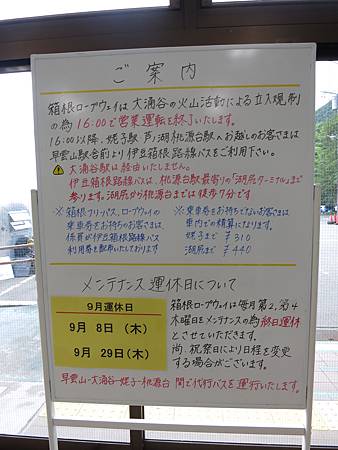 ご案内
箱根ロープウェイは大涌谷の火山活動による立入規制
の為16:00で営業運転を終了いたします。
16:00以降、姥子駅 芦ノ湖 桃源台駅へお越しのお客さまは
早雲山駅舎前より伊豆箱根路線バスをご利用下さい。
大涌谷駅は経由いたしません。
伊豆箱根路線バスは、桃源台駅最寄りの「湖尻ターミナル」まで
参ります。湖尻から桃源台までは徒歩7分です
※箱根フリーパス、ロープウェイの
乗車券をお持ちのお客さまは、
係員が伊豆箱根路線バス
利用券を配布いたしております
※乗車券をお持ちでないお客さまは
車内での精算になります。
姥子まで ¥310
湖尻まで ¥440
メンテナンス運休日について
9月運休日
9月 8日(木)
9月 29日(木)
箱根ロープウェイは毎月第2、第4
木曜日をメンテナンスの為終日運休
とさせていただきます。
尚、祝祭日により日程を変更
する場合がございます。
早雲山-大涌谷-姥子-桃源台 間で代行バスを運行いたします。